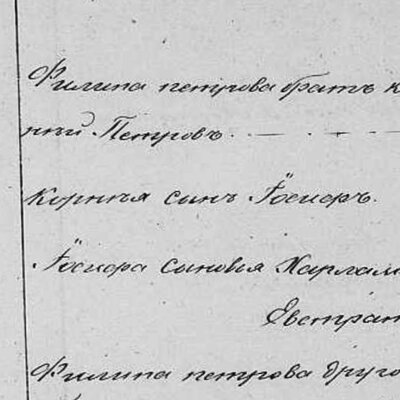 Филипа петрова братъ к
ний Петровъ. — . —
корнья сынъ Їосиоръ.
Їосиора сыновья Харлам
Евстрат
Филипа петрова друго